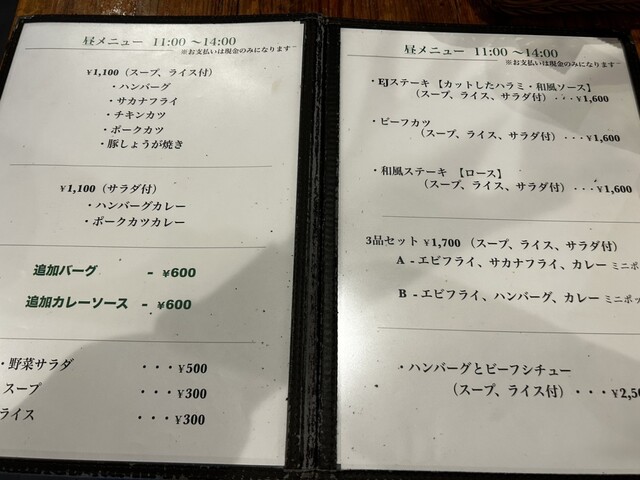 昼メニュー 11:00 ～14:00
※お支払いは現金のみになります
¥1,100（スープ、ライス付）
・ハンバーグ
・サカナフライ
・チキンカツ
・ポークカツ
・豚しょうが焼き
¥1,100（サラダ付）
・ハンバーグカレー
・ポークカツカレー
追加バーグ - ¥600
追加カレーソース - ¥600
・野菜サラダ ・・・¥500
スープ ・・・¥300
ライス ・・・¥300
昼メニュー 11:00 ～14:00
※お支払いは現金のみになります
・EJステーキ 【カットしたハラミ・和風ソース】
（スープ、ライス、サラダ付）・・・¥1,600
・ビーフカツ
（スープ、ライス、サラダ付）・・・¥1,600
・和風ステーキ 【ロース】
（スープ、ライス、サラダ付）・・・¥1,600
3品セット ¥1,700 （スープ、ライス、サラダ付）
A - エビフライ、サカナフライ、カレー
B - エビフライ、ハンバーグ、カレー
・ハンバーグとビーフシチュー
（スープ、ライス付）・・・